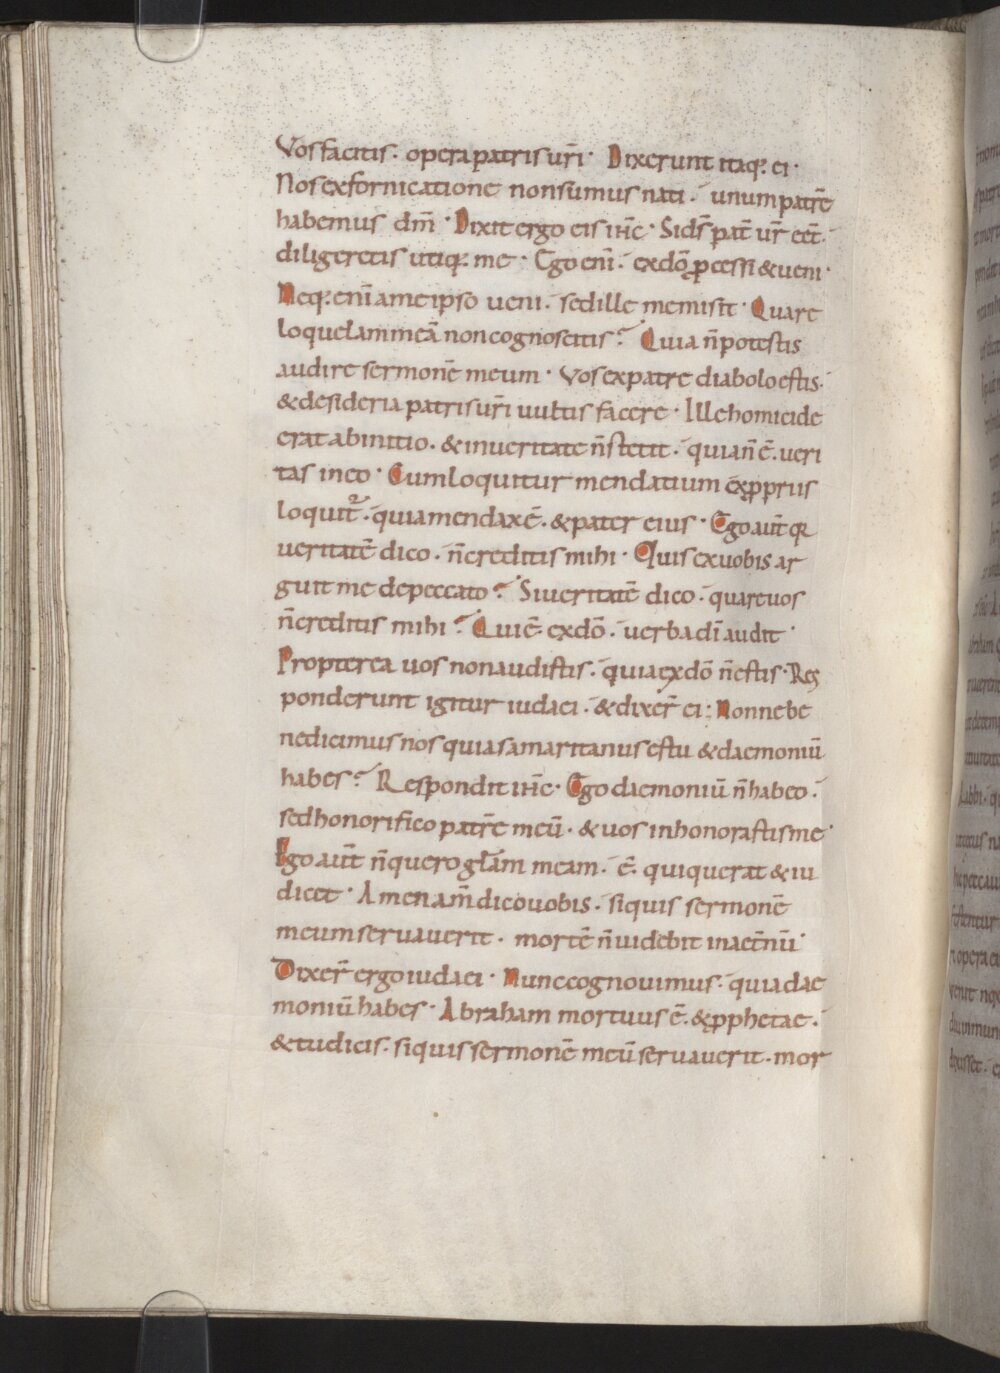 Vos facitis· opera patris ur̄i· Dixerunt itaq; ei·
Nos ex fornicatione non sumus nati· unum patrē
habemus dm̄· Dixit ergo eis ih̄c· Si ds̄ pat̄ ur̄ eēt·
diligeretis utiq; me· Ego eni̅· ex dō ꝓcessi & ueni·
Neq; eni̅ a me ipso ueni· sed ille me misit· Quare
loquelam meā non cognoscitis? Quia n̄ potestis
audire sermonē meum· Vos ex patre diabolo estis·
& desideria patris ur̄i uultis facere· Ille homicide
erat ab initio· & in ueritate n̄ stetit· quia n̄ ē· ueri
tas in eo· Cum loquitur mendatium ex ꝓpriis
loquit᷑· quia mendax ē· & pater eius· Ego aut̄ q̄
ueritatē dico· n̄ creditis mihi· Quis ex uobis ar
guit me de peccato? Si ueritatē dico· quare uos
n̄ creditis mihi? Qui ē ex dō· uerba di̅ audit·
Propterea uos non auditis· quia ex dō n̄ estis· Res
ponderunt igitur iudaei· & dixer̄ ei: Nonne be
nedicimus nos quia samaritanus es tu & daemoniū
habes? Respondit ih̄c· Ego daemoniū n̄ habeo·
sed honorifico patrē meū· & uos inhonorastis me·
Ego aut̄ n̄ quero gl̄am meam· ē· qui querat & iu
dicet· Amen am̄ dico uobis· siquis sermonē
meum seruauerit· mortē n̄ uidebit in aet̄nū·
Dixer̄ ergo iudaei· Nunc cognouimus· quia dae
moniū habes· Abraham mortuus ē· & ꝓphetae·
& tu dicis· siquis sermonē meū seruauerit· mor